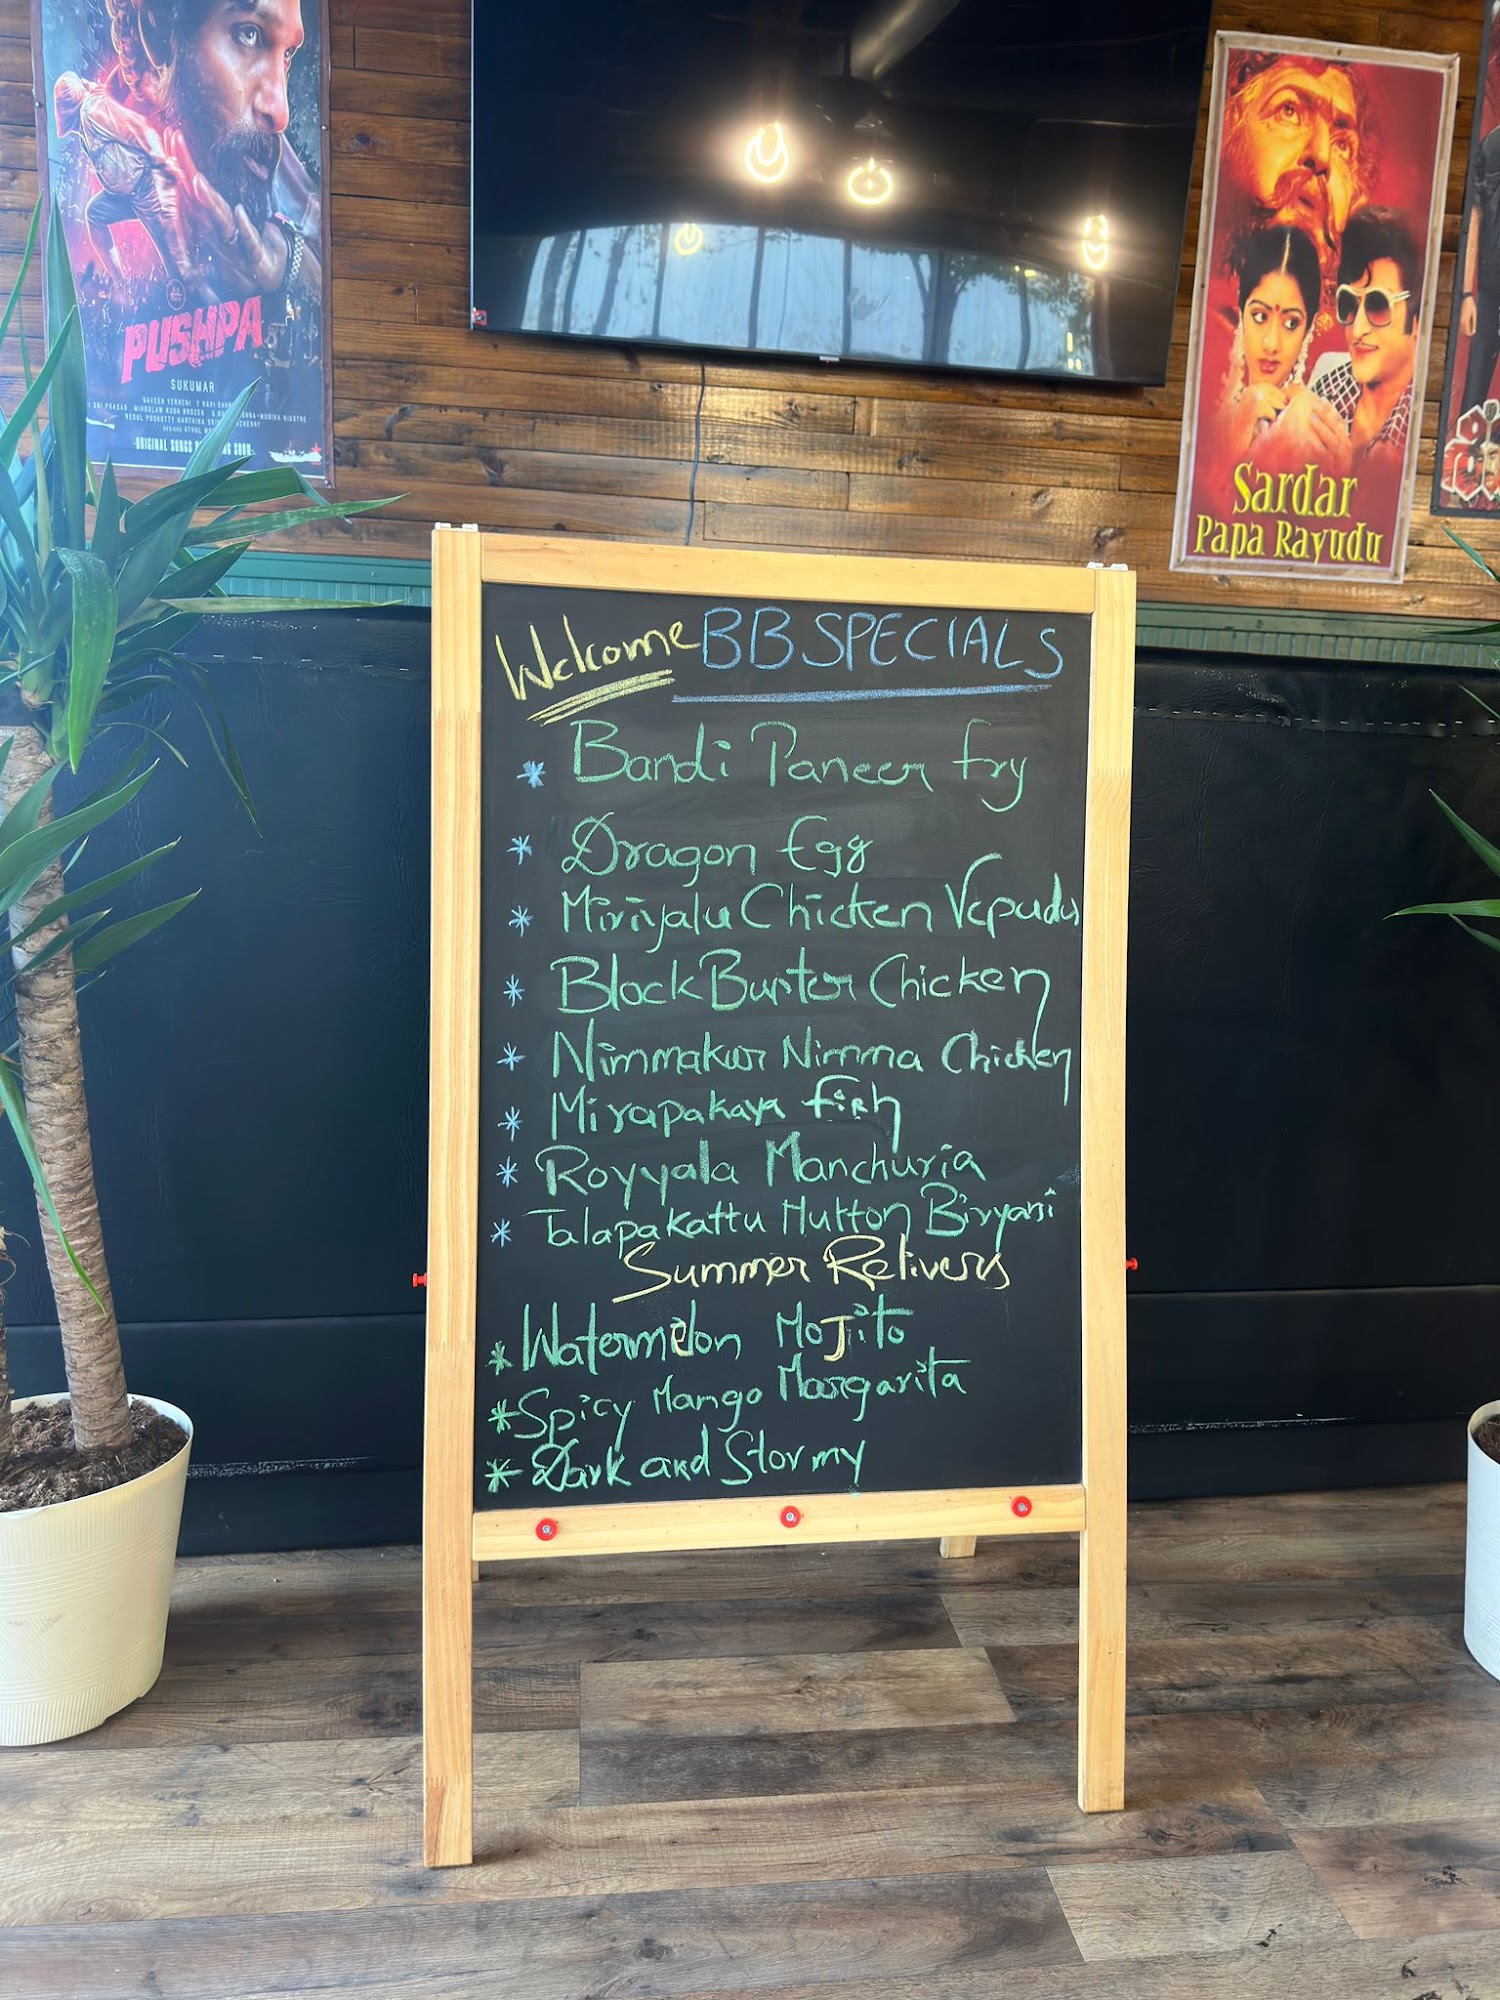 PUSHPA
SUKUMAR
Sardar
Papa Rayudu
Welcome BB SPECIALS
* Bandi Paneer fry
* Dragon Egg
* Miriyalu Chicken Vepudu
* Block Buster Chicken
* Nimmakur Nimma Chicken
* Mirapakaya fish
* Royyala Manchuria
* Talapakattu Mutton Biryani
Summer Relivers
* Watermelon Mojito
* Spicy Mango Margarita
* Dark and Stormy